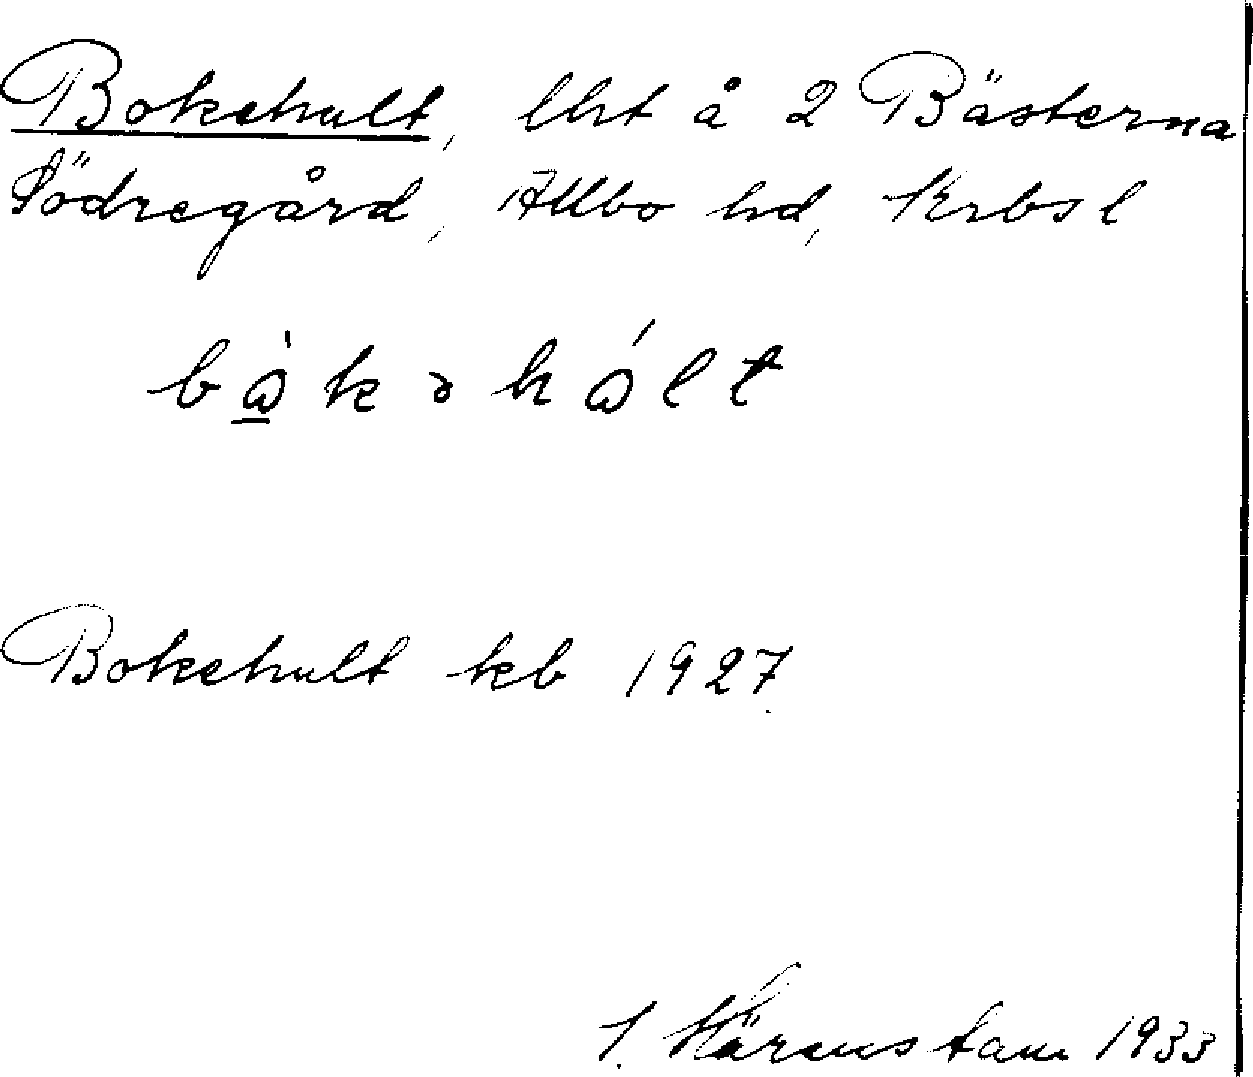 Bokehult, lht å 2 Bästerna
Södregård, Allbo hd, Krbsl
bὼ̲kəhώlt
Bokehult kb 1927
1933